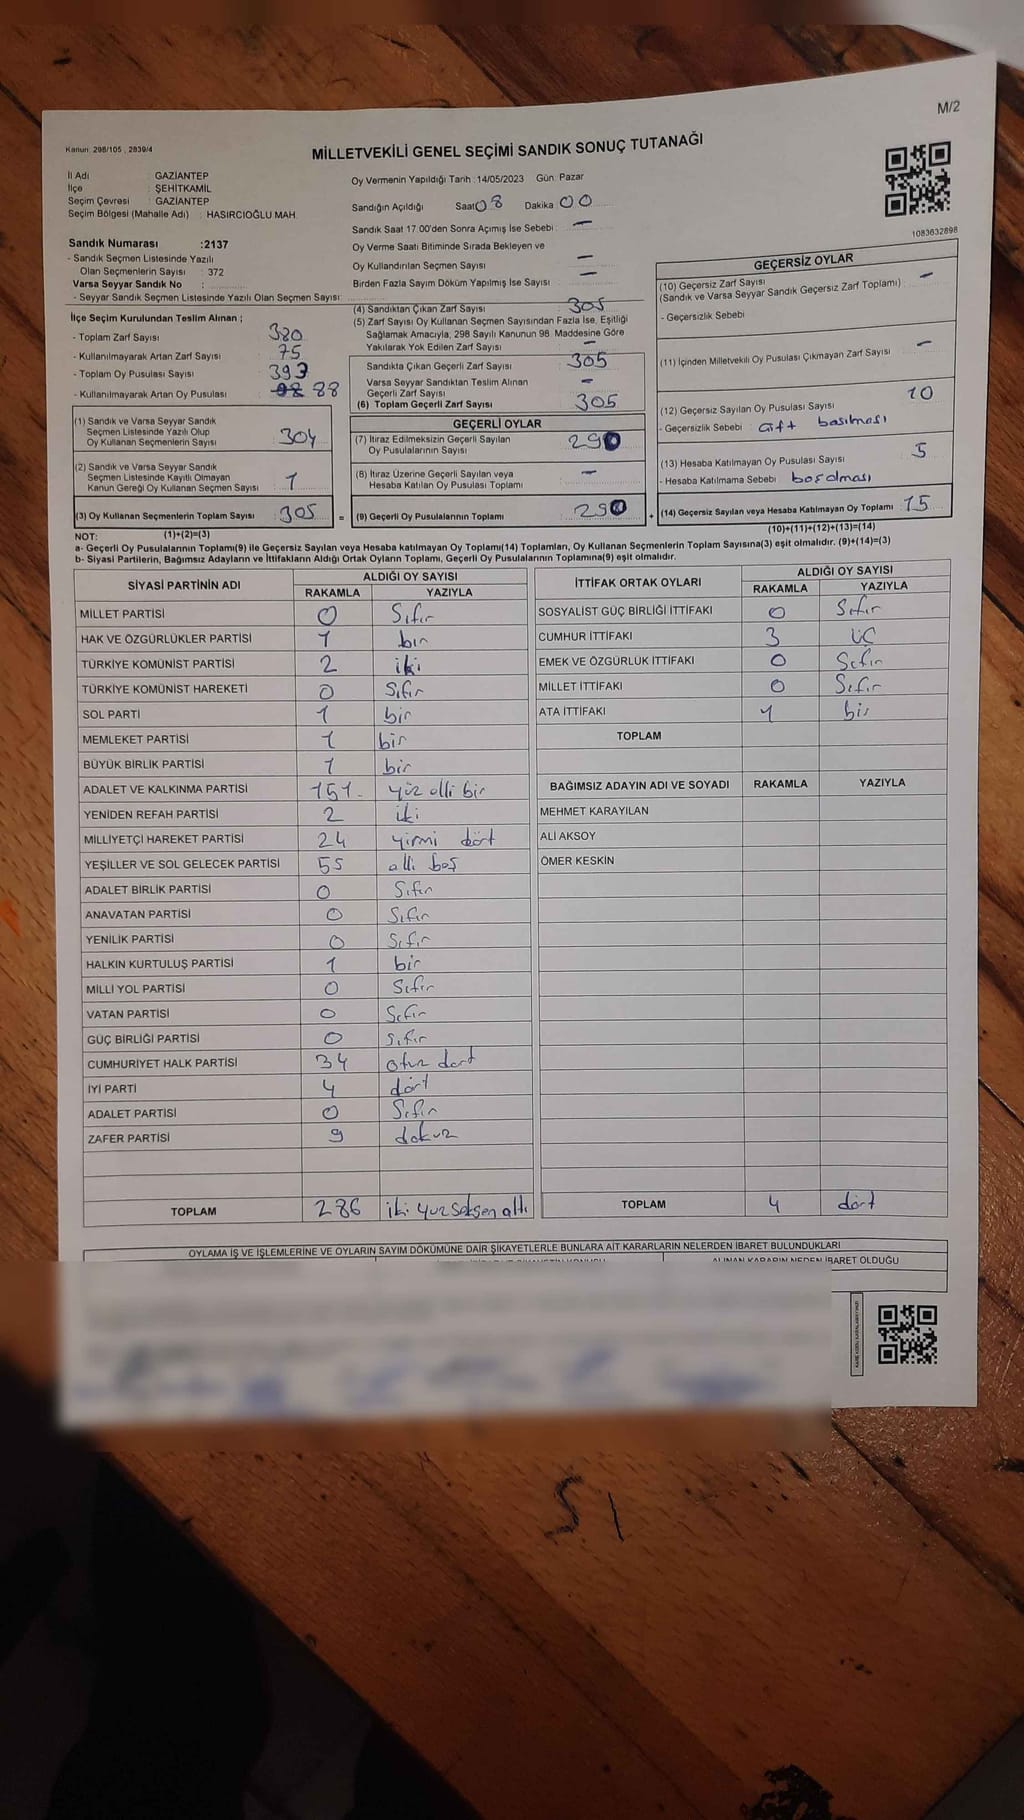 M/2
Kanun: 298/105 , 2839/4
MİLLETVEKİLİ GENEL SEÇİMİ SANDIK SONUÇ TUTANAĞI
İl Adı : GAZİANTEP
İlçe : ŞEHİTKAMİL
Seçim Çevresi : GAZİANTEP
Seçim Bölgesi (Mahalle Adı) : HASIRCIOĞLU MAH.
Sandık Numarası :2137
- Sandık Seçmen Listesinde Yazılı
Olan Seçmenlerin Sayısı : 372
Varsa Seyyar Sandık No :
- Seyyar Sandık Seçmen Listesinde Yazılı Olan Seçmen Sayısı:
İlçe Seçim Kurulundan Teslim Alınan ;
- Toplam Zarf Sayısı : 380
- Kullanılmayarak Artan Zarf Sayısı : 75
- Toplam Oy Pusulası Sayısı : 393
- Kullanılmayarak Artan Oy Pusulası : 88
(1) Sandık ve Varsa Seyyar Sandık
Seçmen Listesinde Yazılı Olup
Oy Kullanan Seçmenlerin Sayısı : 304
(2) Sandık ve Varsa Seyyar Sandık
Seçmen Listesinde Kayıtlı Olmayan
Kanun Gereği Oy Kullanan Seçmen Sayısı : 1
(3) Oy Kullanan Seçmenlerin Toplam Sayısı : 305
(1)+(2)=(3)
Oy Vermenin Yapıldığı Tarih :14/05/2023 Gün: Pazar
Sandığın Açıldığı Saat 08 Dakika 00
Sandık Saat 17.00'den Sonra Açımış İse Sebebi : –
Oy Verme Saati Bitiminde Sırada Bekleyen ve
Oy Kullandırılan Seçmen Sayısı : –
Birden Fazla Sayım Döküm Yapılmış İse Sayısı : –
(4) Sandıktan Çıkan Zarf Sayısı : 305
(5) Zarf Sayısı Oy Kullanan Seçmen Sayısından Fazla İse, Eşitliği
Sağlamak Amacıyla, 298 Sayılı Kanunun 98. Maddesine Göre
Yakılarak Yok Edilen Zarf Sayısı : –
Sandıkta Çıkan Geçerli Zarf Sayısı : 305
Varsa Seyyar Sandıktan Teslim Alınan
Geçerli Zarf Sayısı : –
(6) Toplam Geçerli Zarf Sayısı : 305
GEÇERLİ OYLAR
(7) İtiraz Edilmeksizin Geçerli Sayılan
Oy Pusulalarının Sayısı : 290
(8) İtiraz Üzerine Geçerli Sayılan veya
Hesaba Katılan Oy Pusulası Toplamı : –
= (9) Geçerli Oy Pusulalarının Toplamı : 290 +
1083632898
GEÇERSİZ OYLAR
(10) Geçersiz Zarf Sayısı : –
(Sandık ve Varsa Seyyar Sandık Geçersiz Zarf Toplamı)
- Geçersizlik Sebebi
(11) İçinden Milletvekili Oy Pusulası Çıkmayan Zarf Sayısı : –
(12) Geçersiz Sayılan Oy Pusulası Sayısı : 10
- Geçersizlik Sebebi : Çift basılması
(13) Hesaba Katılmayan Oy Pusulası Sayısı : 5
- Hesaba Katılmama Sebebi : boş olması
(14) Geçersiz Sayılan veya Hesaba Katılmayan Oy Toplamı : 15
(10)+(11)+(12)+(13)=(14)
NOT:
a- Geçerli Oy Pusulalarının Toplamı(9) ile Geçersiz Sayılan veya Hesaba katılmayan Oy Toplamı(14) Toplamları, Oy Kullanan Seçmenlerin Toplam Sayısına(3) eşit olmalıdır. (9)+(14)=(3)
b- Siyasi Partilerin, Bağımsız Adayların ve İttifakların Aldığı Ortak Oyların Toplamı, Geçerli Oy Pusulalarının Toplamına(9) eşit olmalıdır.
SİYASİ PARTİNİN ADI ALDIĞI OY SAYISI
RAKAMLA YAZIYLA
MİLLET PARTİSİ 0 Sıfır
HAK VE ÖZGÜRLÜKLER PARTİSİ 1 bir
TÜRKİYE KOMÜNİST PARTİSİ 2 iki
TÜRKİYE KOMÜNİST HAREKETİ 0 Sıfır
SOL PARTİ 1 bir
MEMLEKET PARTİSİ 1 bir
BÜYÜK BİRLİK PARTİSİ 1 bir
ADALET VE KALKINMA PARTİSİ 151 yüz elli bir
YENİDEN REFAH PARTİSİ 2 iki
MİLLİYETÇİ HAREKET PARTİSİ 24 yirmi dört
YEŞİLLER VE SOL GELECEK PARTİSİ 55 elli beş
ADALET BİRLİK PARTİSİ 0 Sıfır
ANAVATAN PARTİSİ 0 Sıfır
YENİLİK PARTİSİ 0 Sıfır
HALKIN KURTULUŞ PARTİSİ 1 bir
MİLLİ YOL PARTİSİ 0 Sıfır
VATAN PARTİSİ 0 Sıfır
GÜÇ BİRLİĞİ PARTİSİ 0 Sıfır
CUMHURİYET HALK PARTİSİ 34 otuz dört
İYİ PARTİ 4 dört
ADALET PARTİSİ 0 Sıfır
ZAFER PARTİSİ 9 dokuz
TOPLAM 286 iki yüz seksen altı
İTTİFAK ORTAK OYLARI ALDIĞI OY SAYISI
RAKAMLA YAZIYLA
SOSYALİST GÜÇ BİRLİĞİ İTTİFAKI 0 Sıfır
CUMHUR İTTİFAKI 3 üç
EMEK VE ÖZGÜRLÜK İTTİFAKI 0 Sıfır
MİLLET İTTİFAKI 0 Sıfır
ATA İTTİFAKI 1 bir
TOPLAM
BAĞIMSIZ ADAYIN ADI VE SOYADI RAKAMLA YAZIYLA
MEHMET KARAYILAN
ALİ AKSOY
ÖMER KESKİN
TOPLAM 4 dört
OYLAMA İŞ VE İŞLEMLERİNE VE OYLARIN SAYIM DÖKÜMÜNE DAİR ŞİKAYETLERLE BUNLARA AİT KARARLARIN NELERDEN İBARET BULUNDUKLARI
ALINAN KARARIN NEDEN İBARET OLDUĞU